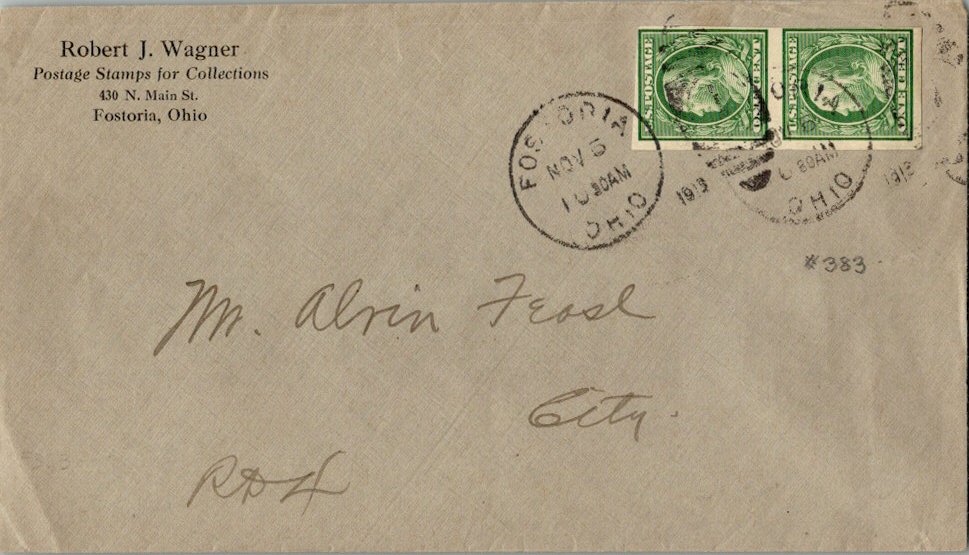 Robert J. Wagner
Postage Stamps for Collections
430 N. Main St.
Fostoria, Ohio
U.S.POSTAGE
ONE CENT
U.S.POSTAGE
ONE CENT
FOSTORIA
NOV 5
10 30AM
OHIO
1913
NOV 5
30AM
OHIO
1913
#383
Mr. Alvin Feasel
City.
RD4